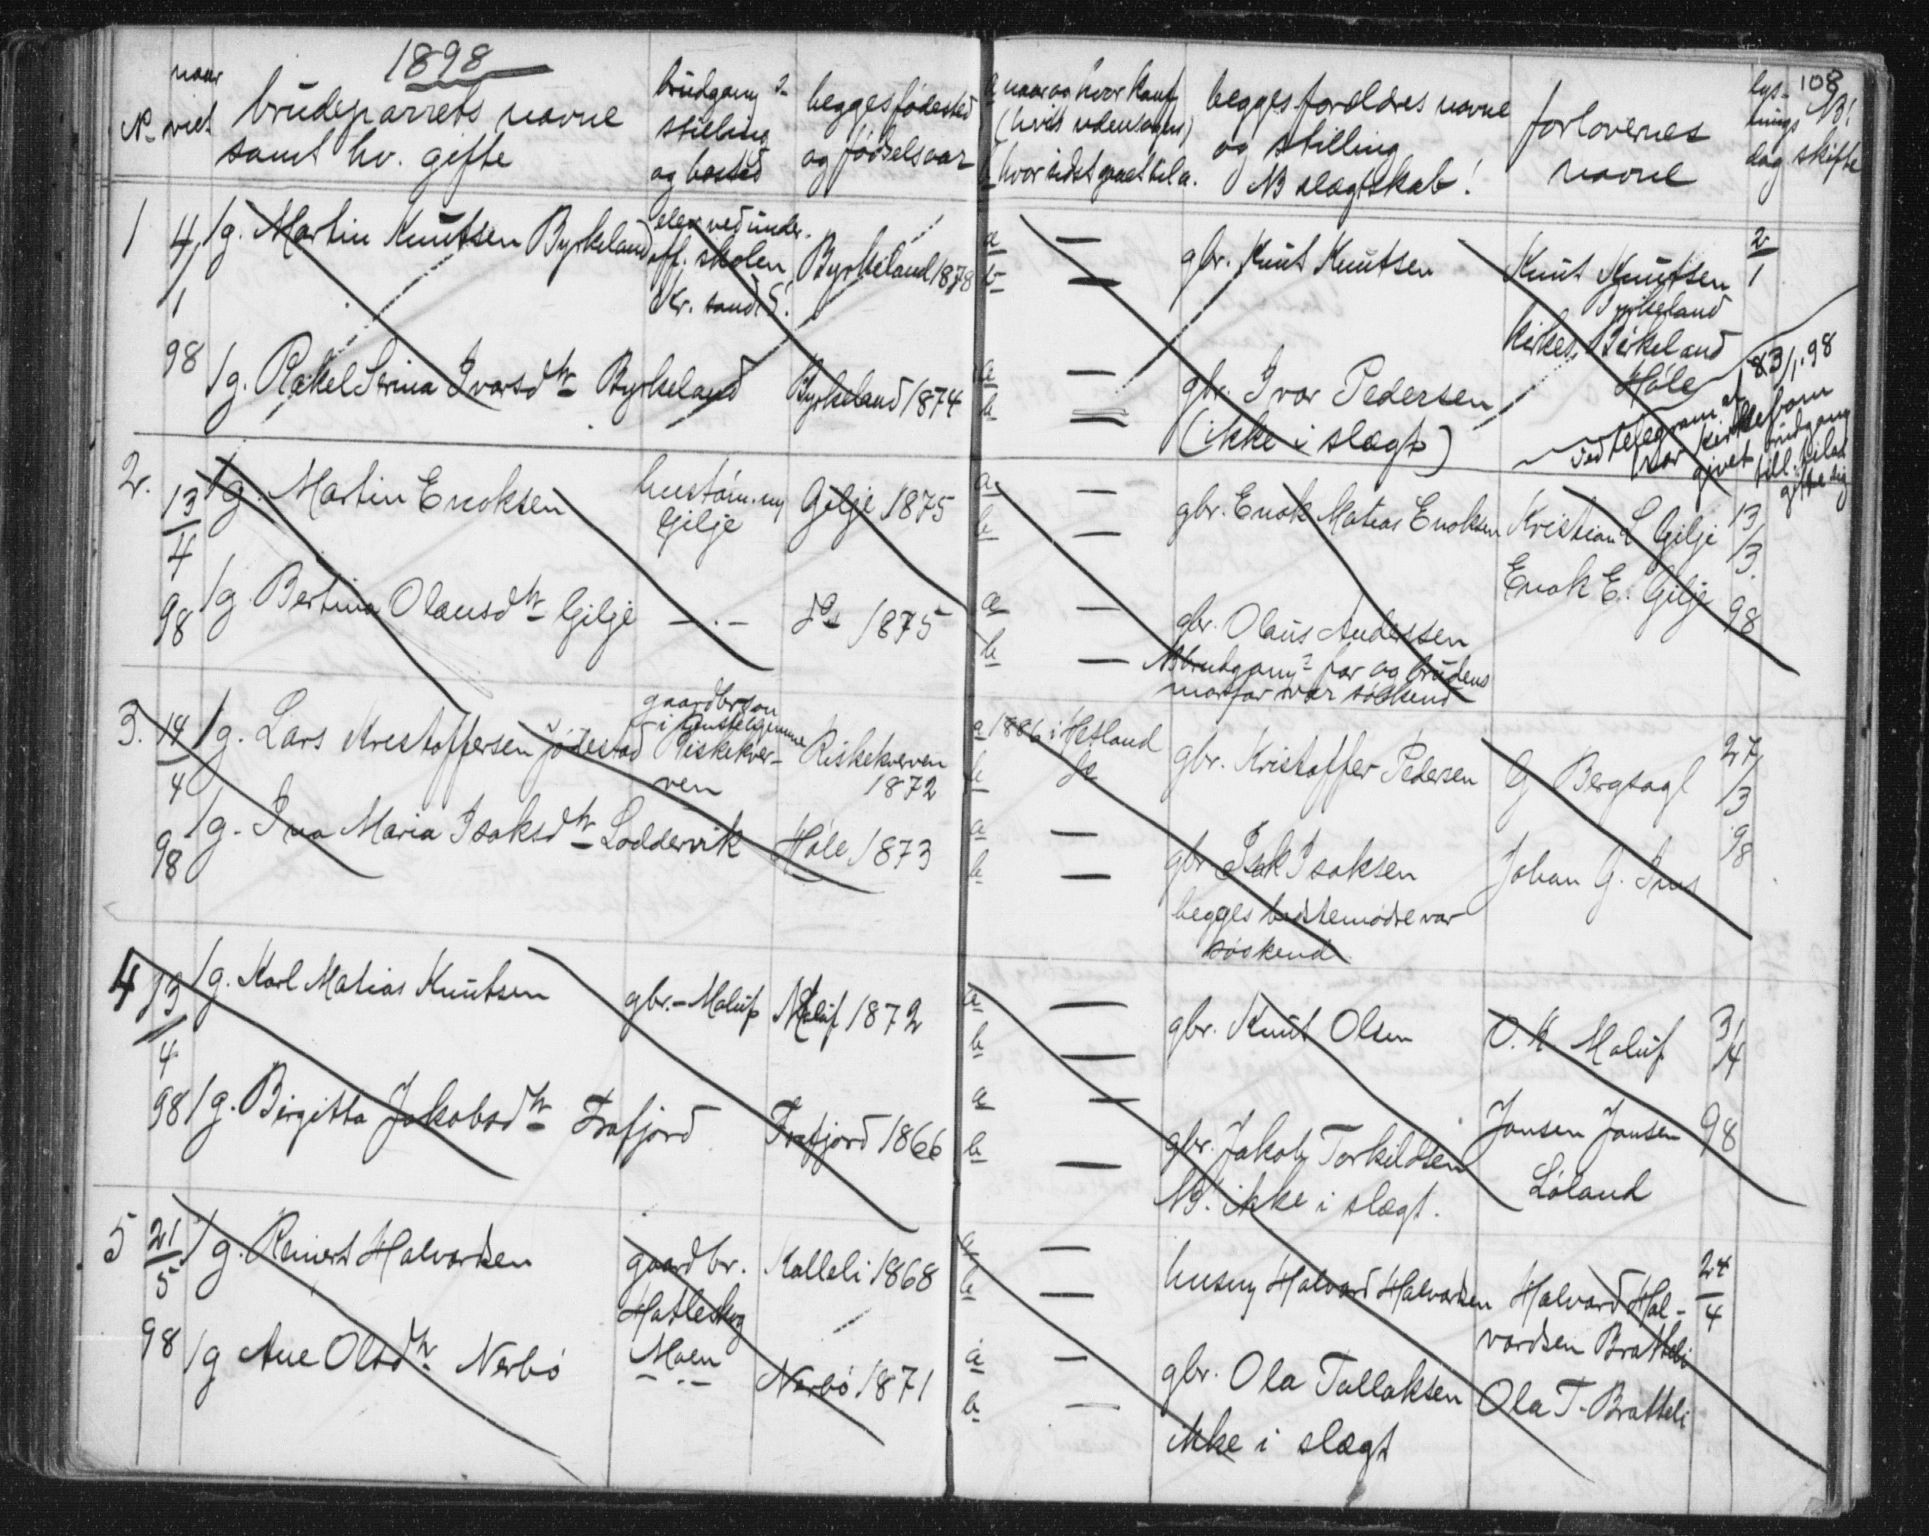 1898
108
No
naar viet
brudeparrets navne
samt hv. gifte
brudgoms
stilling
og bosted
begges fødested
og fødselsaar
a naar og hvor konf.
(hvis udensogns)
b hvor sidst gaaet til a.
begges forældres navne
og stilling
NB slægtskab!
forlovernes
navne
lys-
nings
dag
NB!
skifte
1
4/1
98
1 g. Martin Knutsen Byrkeland
elev ved under-
off. skolen
Kr. sand S.
Byrkeland 1878
a —
b —
gbr. Knut Knutsen
Knut Knutsen
Byrkeland
2/1
1 g. Rakel Serina Ivarsdtr Byrkeland
Byrkeland 1874
a —
b —
gbr. Ivar Pedersen
(ikke i slægt)
Birkeland
Høle
ved telegram af
83/1.98
givet brudgom
till. til at
gifte sig
2.
13/4
98
1 g. Martin Enoksen
Gilje
Gilje 1875
a —
b —
gbr. Enok Matias Enoksen
Kristian L Gilje
Enok E. Gilje
13/3.
98
1 g Bertina Olausdtr Gilje
— . —
do 1875
a —
b —
gbr. Olaus Anderssen
NB brudgoms far og brudens
morfar var søskend
3.
14/4
98
1 g. Lars Kristoffersen Jødestad
gaardbr. søn
Riskekver-
ven
Riskekverven
1872
a 1886 i Hetland
b do
gbr. Kristoffer Pedersen
G Bergsagl
27/3
98
1 g. Ina Maria Isaksdtr Loddervik
Høle 1873
a —
b —
gbr Isak Isaksen
begges bedstemødre var
søskend
Johan G. Ims
4
13/4
98
1 g. Karl Matias Knutsen
gbr. - Maluf
Maluf 1872
a —
b —
gbr. Knut Olsen
O. K Maluf
3/4
98
1 g. Birgitta Jakobsdtr Frafjord
Frafjord 1866
a —
b —
gbr. Jakob Torkildsen
NB! ikke i slægt.
Jonsen Jonsen
Løland
5
21/5
98
1 g. Reinert Halvardsen
gaardbr.
Hatleskog
Moen
Kalleli 1868
a —
b —
husmy Halvard Halvardsen
Halvard Hal-
vardsen Bratteli
24/4
1 g Ane Olsdtr Nerbø
— . . —
Nerbø 1871
a —
b —
gbr. Ola Tallaksen
ikke i slægt
Ola T. Bratteli